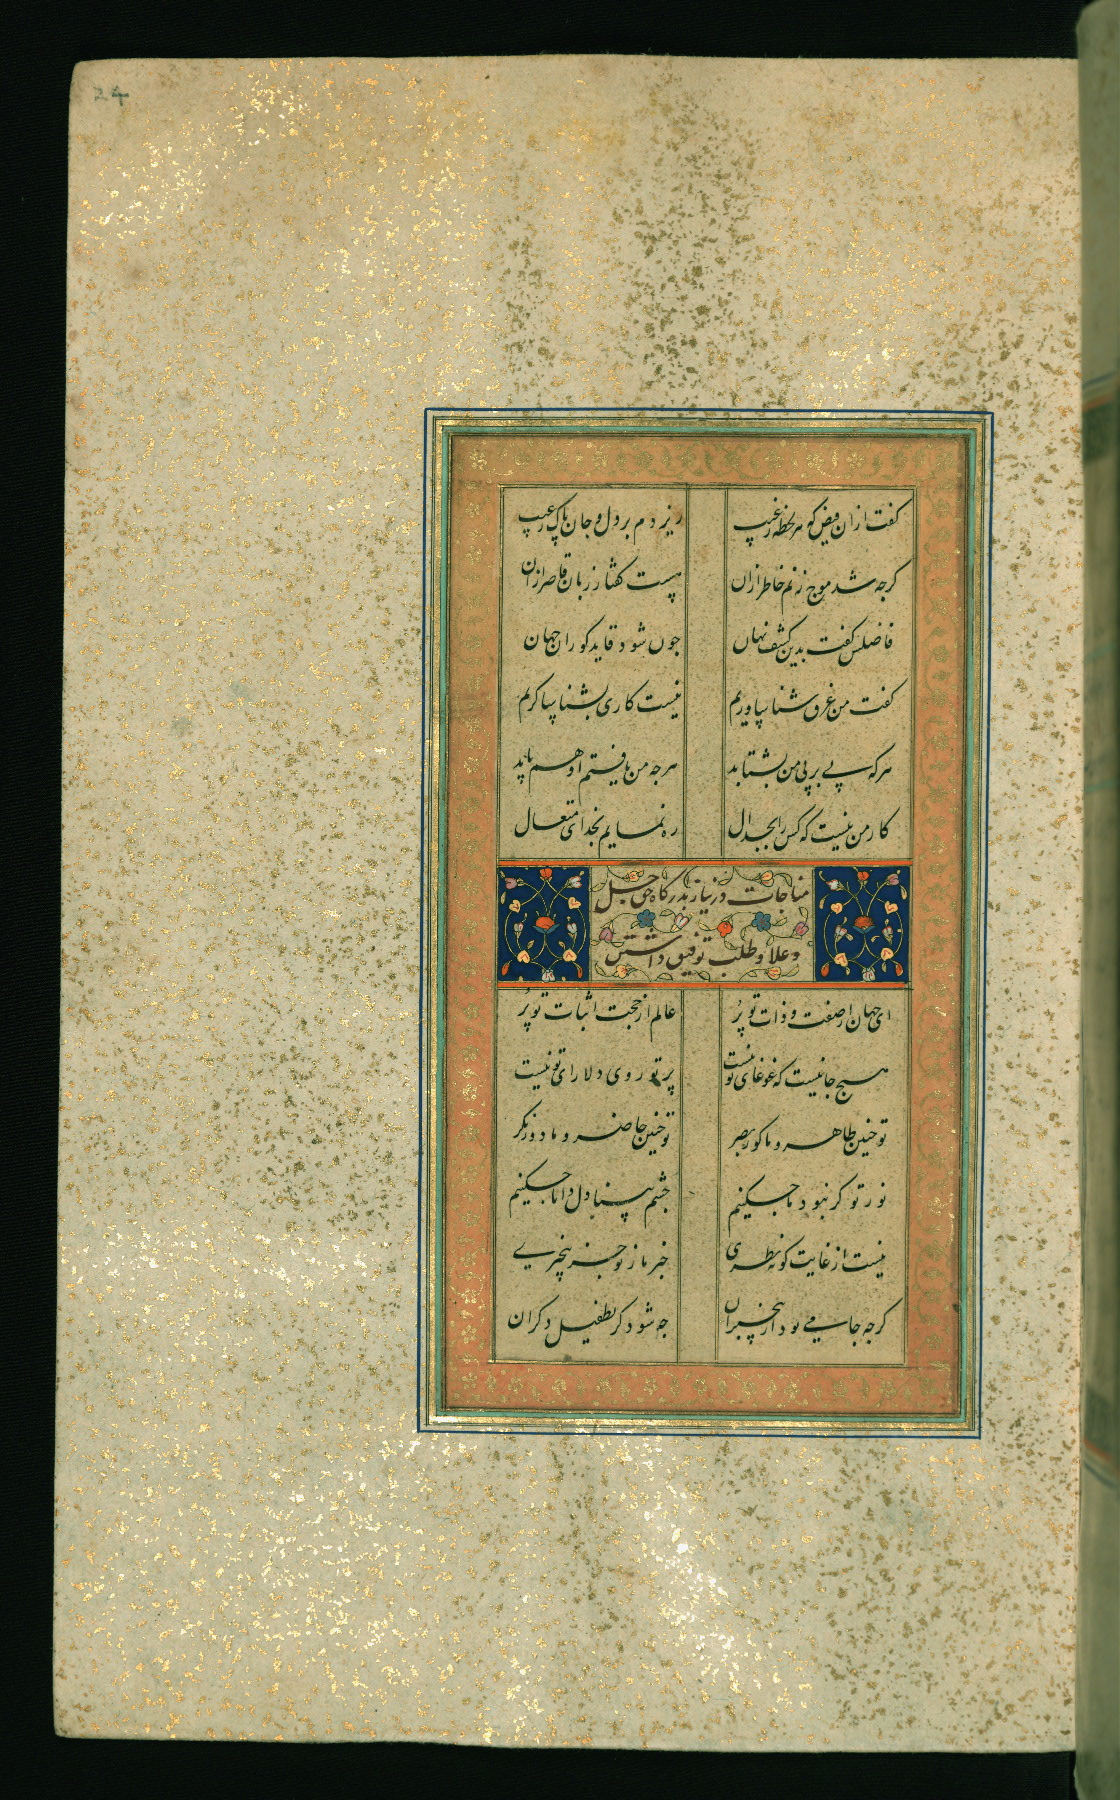 24
کفت ازان فیض که هر لحظه ز غیب ریزدم بر دل و جان پاک ز عیب
کرجه شد موج زنم خاطر ازان هست کفتار زبان قاصر ازان
فاضلش کفت بدین کشف نهان جون شود قاید کوران جهان
کفت من غرق شناساوریم نیست کاری بشناساکریم
هر که پی بر پی من بشتابد هرجه من یافتم او هم یابد
کار من نیست که کس را بجدال ره نمایم بخدای متعال
مناجات در نیاز بدرکاه حق جل
و علا و طلب توفیق داشتن
ای جهان از صفت و ذات تو پُر عالم از حجت اثبات تو پُر
هیچ جا نیست که غوغای تو نیست پرتو روی دلارای تو نیست
تو جنین ظاهر و ما کور بصر تو جنین حاضر و ما دورنکر
نور تو کر نبود ما جکنیم جشم بینا دل دانا جکنیم
نیست از غایت کوته نظری خبر ما ز تو جز بیخبری
کرجه جامی بود از بیخبران جه شود کر بطفیل دکران